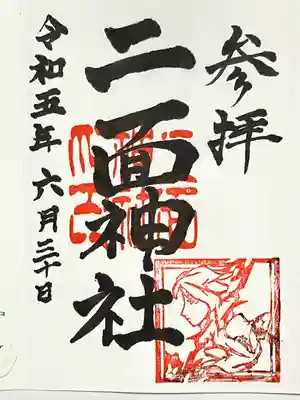 参拝
二面神社
令和五年六月三十日